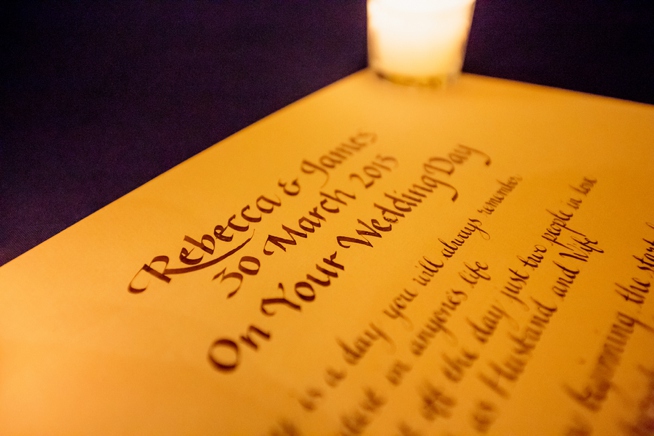 Rebecca & James
30 March 2015
On Your Wedding Day
is a day you will always remember
in anyone's life
off the day just two people in love
as Husband and Wife
beginning the start